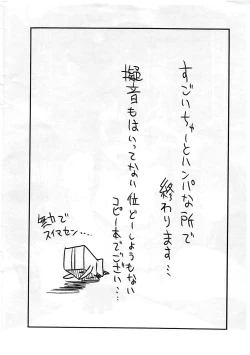 すごいちゅーとハンパな所で
終わります…
擬音もはいってない位どーしようもない
コピー本でござい…
勢いで
スイマセン…